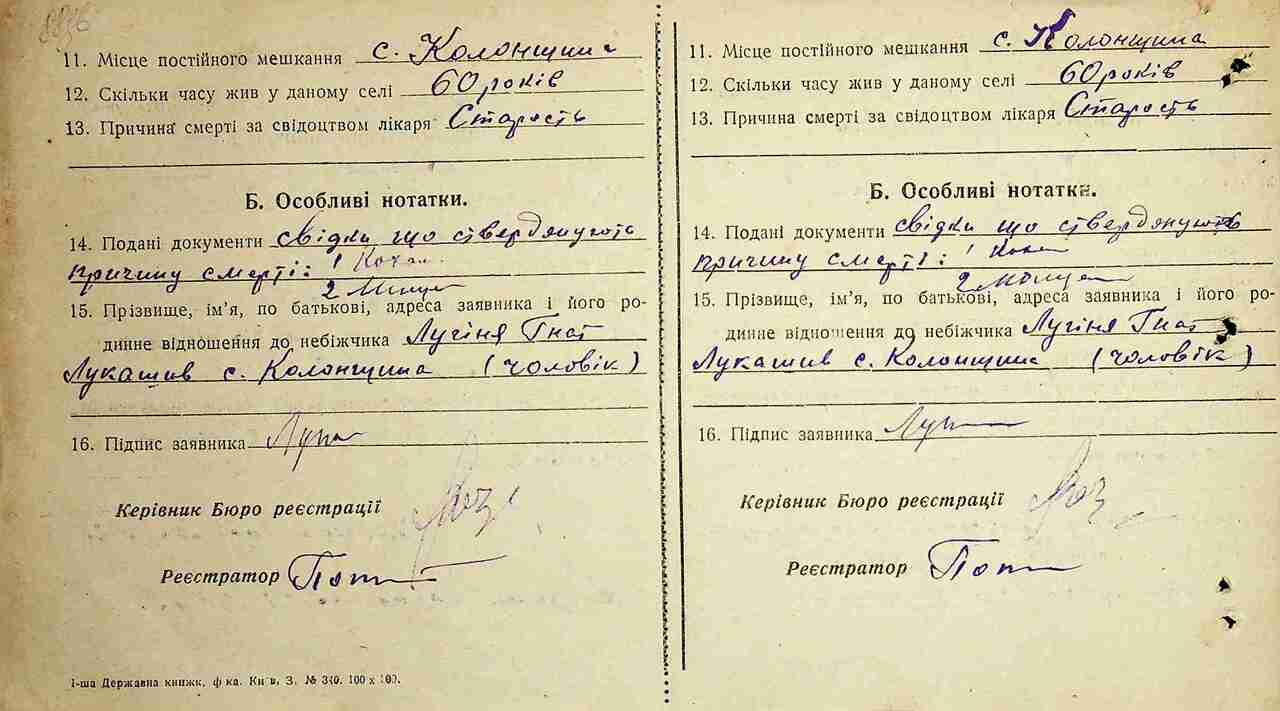 11. Місце постійного мешкання с. Колонщина
12. Скільки часу жив у даному селі 60 років
13. Причина смерті за свідоцтвом лікаря Старость
Б. Особливі нотатки.
14. Подані документи свідки що ствердянують
причину смерті: 1
2
15. Прізвище, ім’я, по батькові, адреса заявника і його ро-
динне відношення до небіжчика Лугіня Гнат
Лукашив с. Колонщина (чоловік)
16. Підпис заявника
Керівник Бюро реєстрації
Реєстратор
1-ша Державна книжк. ф-ка. Київ, З. № 340. 100 x 100.
11. Місце постійного мешкання с. Колонщина
12. Скільки часу жив у даному селі 60 років
13. Причина смерті за свідоцтвом лікаря Старость
Б. Особливі нотатки.
14. Подані документи свідки що ствердянують
причину смерті: 1
2
15. Прізвище, ім’я, по батькові, адреса заявника і його ро-
динне відношення до небіжчика Лугіня Гнат
Лукашив с. Колонщина (чоловік)
16. Підпис заявника
Керівник Бюро реєстрації
Реєстратор